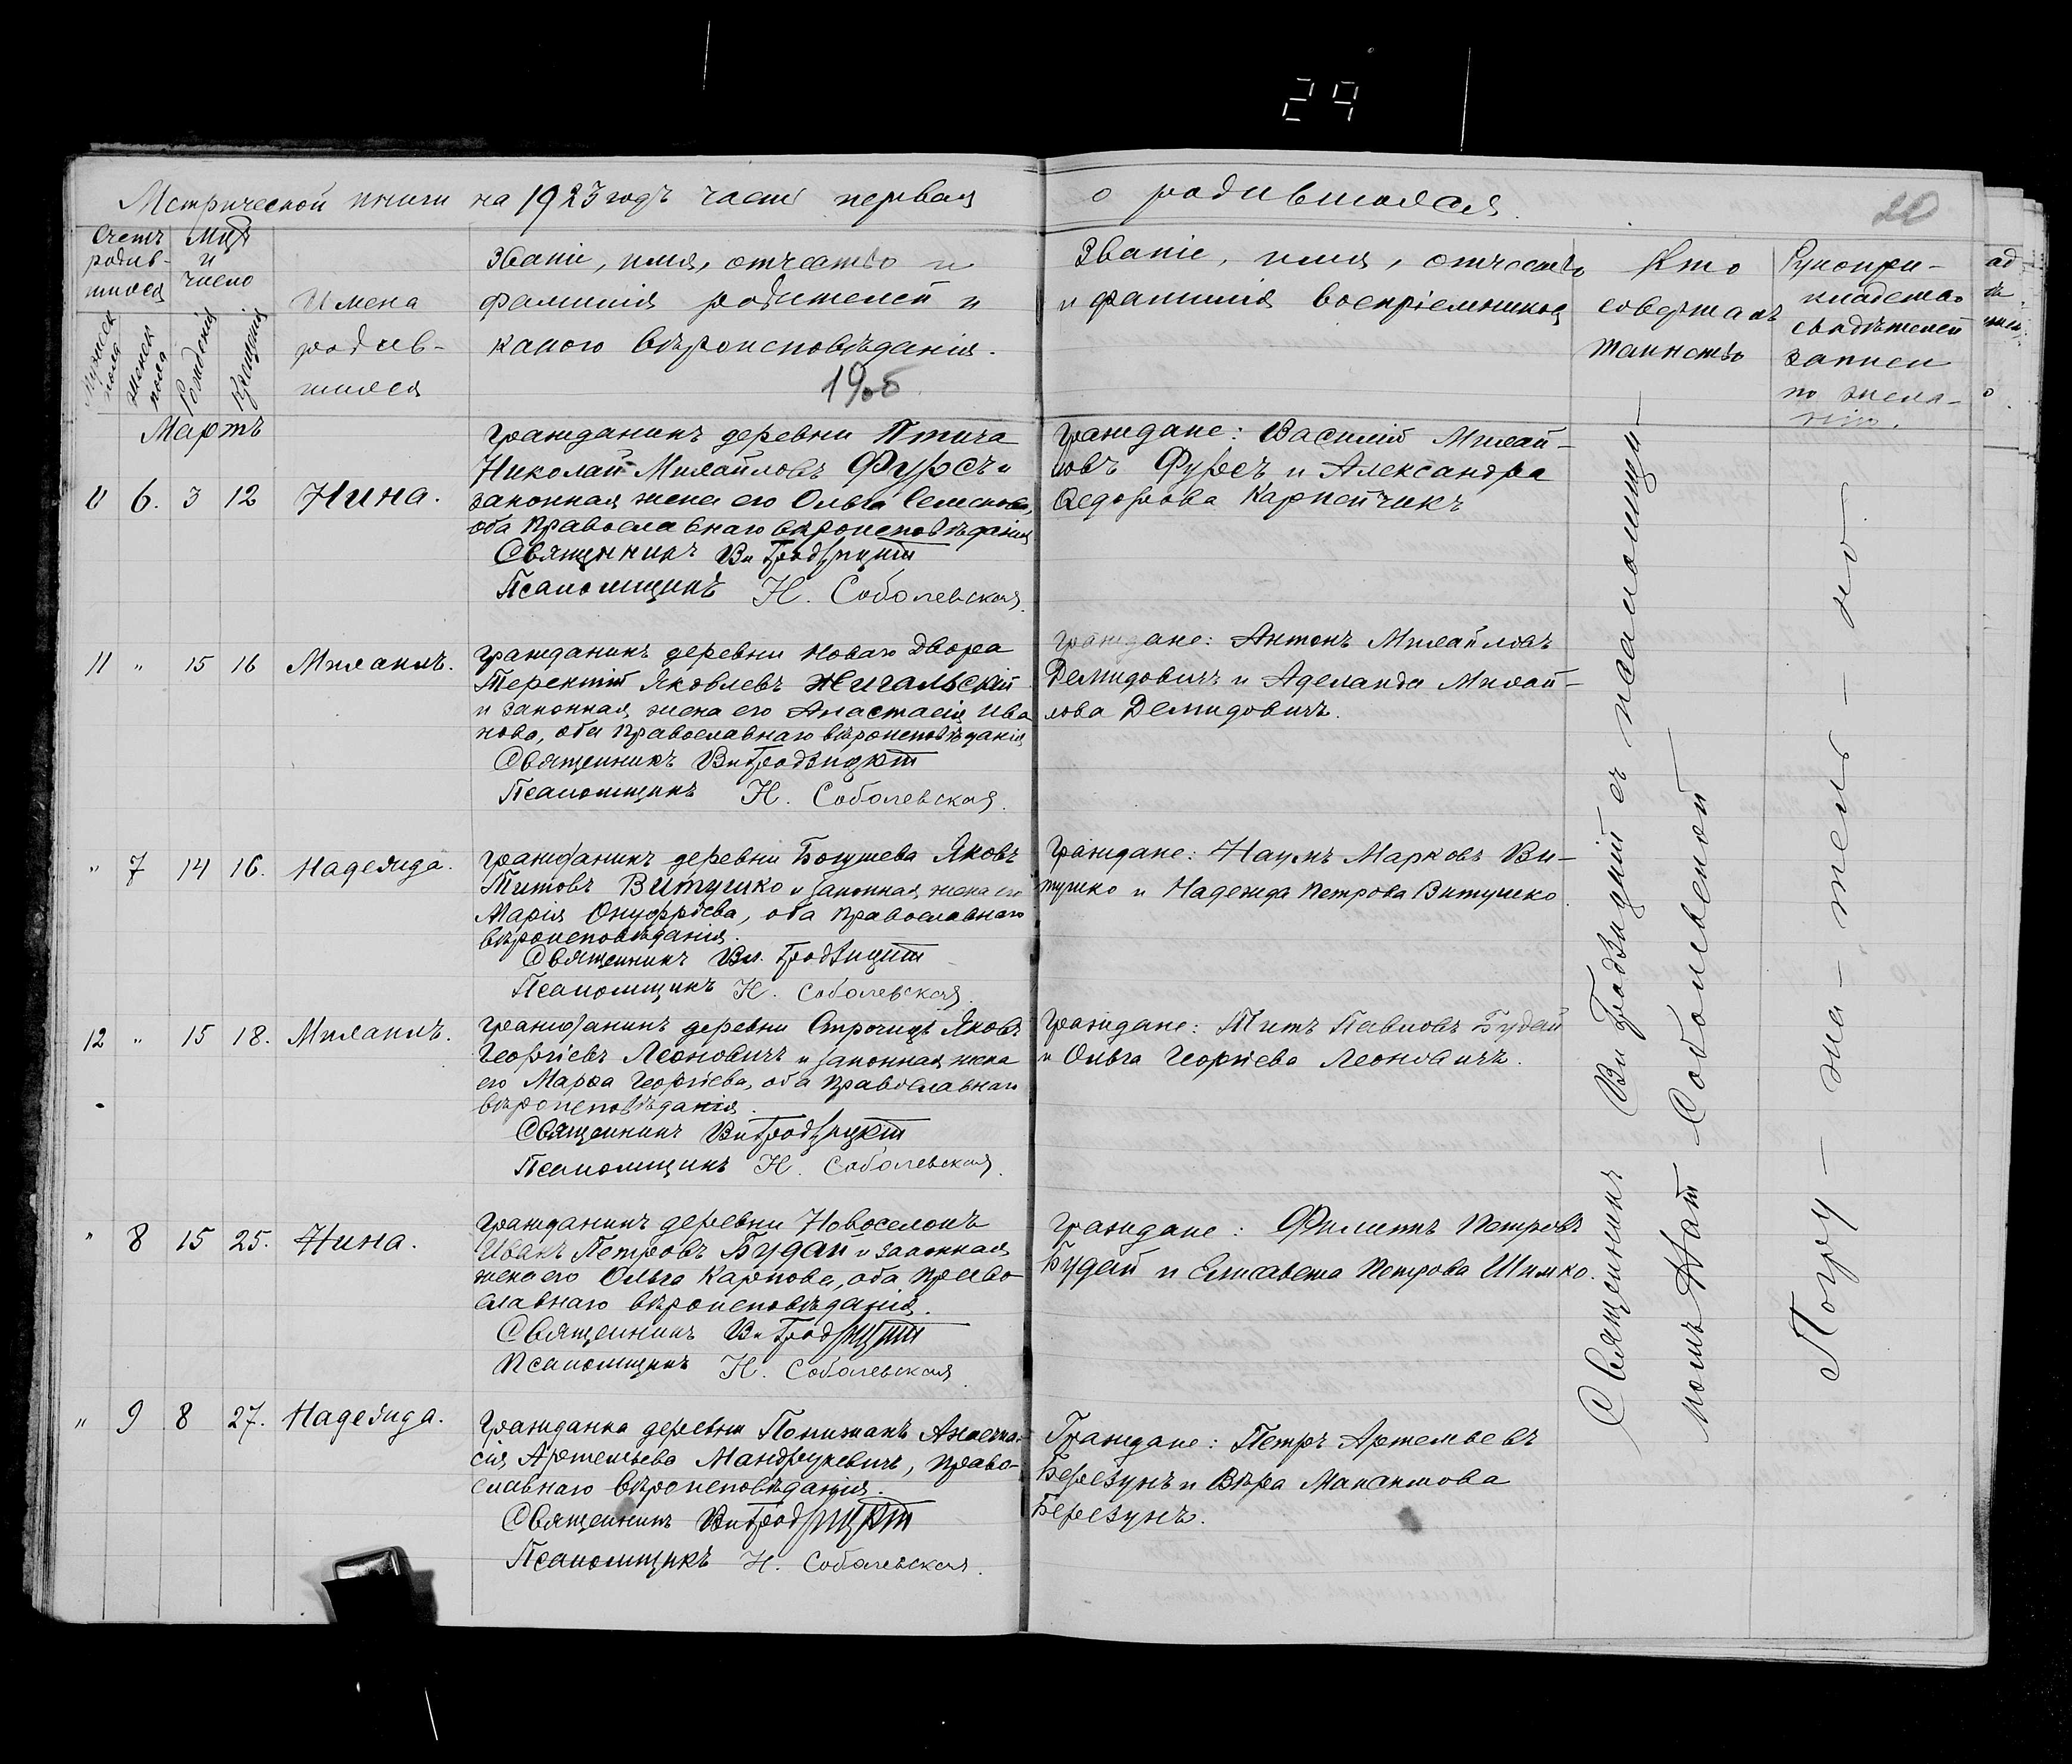 29
Метрической книги на 1923 годъ часть первая о родившихся.
20
Счетъ родив-шихся
Мѣс. и число
Мужеск пола
Женск пола
Рожденія
Крещенія
Имена
родив-
шихся
Званіе, имя, отчество и
фамилія родителей и
какого вѣроисповѣданія.
Званіе, имя, отчество
и фамилія воспріемниковъ
Кто
совершалъ
таинство
Рукопри-
кладство
свидѣтелей
записи
по жела-
нію.
Мартъ
" 6. 3 12 Нина.
Гражданинъ деревни Птича
Николай Михайловъ Фурсъ и
законная жена его Ольга Семенова,
оба Православнаго вѣроисповѣданія
Священникъ Вл. Гродзицкій
Псаломщикъ Н. Соболевская.
Граждане: Василій Михай-
ловъ Фурсъ и Александра
Ѳедорова Карпейчикъ
11 " 15 16 Михаилъ.
Гражданинъ деревни Новаго Двора
Терентій Яковлевъ Жигальскій
и законная жена его Анастасія Ива
нова, оба Православнаго вѣроисповѣданія
Священникъ Вл. Гродзицкій
Псаломщикъ Н. Соболевская.
Граждане: Антонъ Михайловъ
Демидовичъ и Аделаида Михай-
лова Демидовичъ.
" 7 14 16. Надежда.
Гражданинъ деревни Богушева Яковъ
Титовъ Витушко и законная жена его
Марія Онуфріева, оба Православнаго
вѣроисповѣданія.
Священникъ Вл. Гродзицкій
Псаломщикъ Н. Соболевская.
Граждане: Наумъ Марковъ Ви-
тушко и Надежда Петрова Витушко.
12 " 15 18. Михаилъ.
Гражданинъ деревни Строчицъ Яковъ
Георгіевъ Леоновичъ и законная жена
его Марѳа Георгіева, оба Православнаго
вѣроисповѣданія.
Священникъ Вл. Гродзицкій
Псаломщикъ Н. Соболевская.
Граждане: Титъ Павловъ Будай
и Ольга Георгіева Леоновичъ.
" 8 15 25. Нина.
Гражданинъ деревни Новоселокъ
Иванъ Петровъ Будай и законная
жена его Ольга Карпова, оба Право-
славнаго вѣроисповѣданія.
Священникъ Вл. Гродзицкій
Псаломщикъ Н. Соболевская.
Граждане: Филиппъ Петровъ
Будай и Елисавета Петрова Шимко.
" 9 8 27. Надежда.
Гражданка деревни Анаста-
сія Артемьева Мандрукевичъ, Право-
славнаго вѣроисповѣданія.
Священникъ Вл. Гродзицкій
Псаломщикъ Н. Соболевская.
Граждане: Петръ Артемьевъ
Березунъ и Вѣра Максимова
Березунъ.
Священникъ Вл. Гродзицкій съ псаломщи-
комъ Нат Соболевской